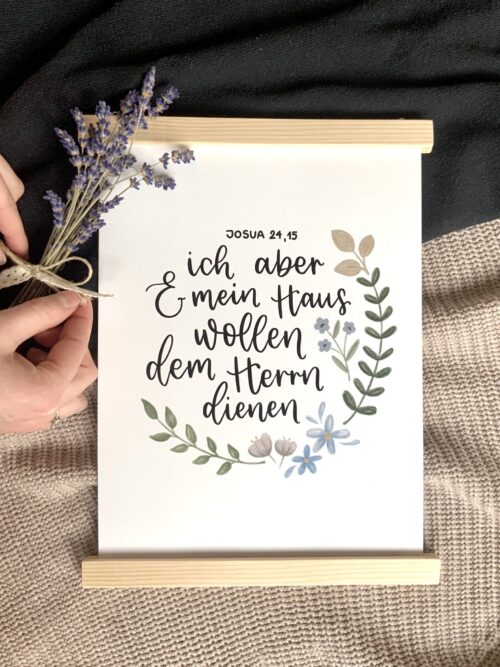 JOSUA 24,15
ich aber
& mein Haus
wollen
dem Herrn
dienen